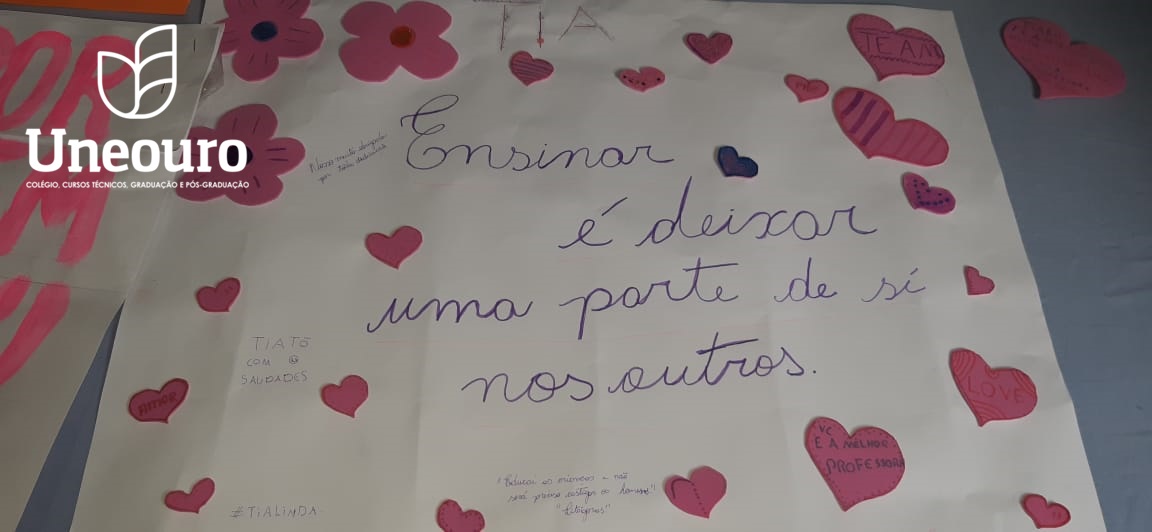 TIA
TE AMO
Uneouro
COLÉGIO, CURSOS TÉCNICOS, GRADUAÇÃO E PÓS-GRADUAÇÃO
Ensinar
é deixar
uma parte de sí
nos outros.
TIA TÔ
COM
SAUDADES
AMOR
LOVE
VC
É A MELHOR
PROFESSORA
"Educai os meninos e não
será preciso castigar os homens"
"Pitágoras"
#TIALINDA